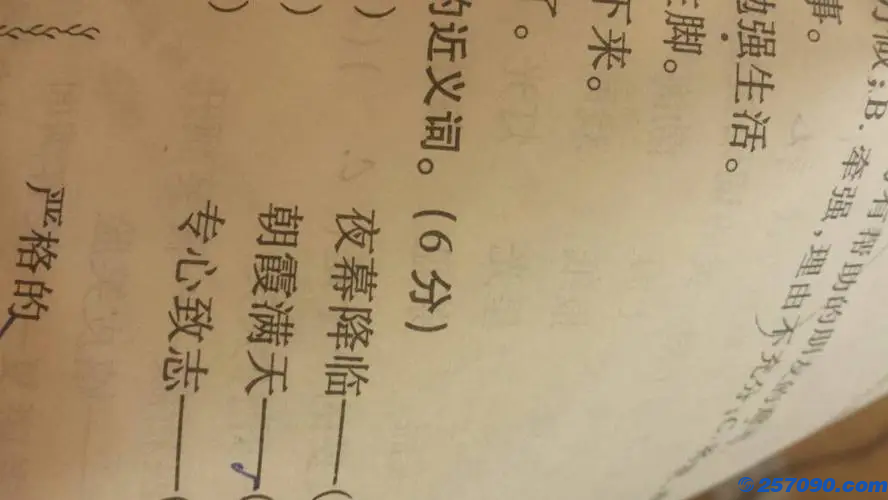 有帮助的朋友的
做；B. 牵强，理由不充分；C.
事。
勉强生活。
脚。
下来。
。
的近义词。（6分）
） 夜幕降临——（
） 朝霞满天——（
） 专心致志——（
严格的
©257090.com